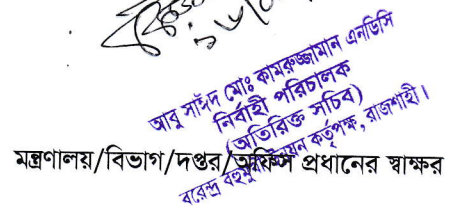 আবু সাঈদ মোঃ কামরুজ্জামান এনডিসি
নির্বাহী পরিচালক
(অতিরিক্ত সচিব)
বরেন্দ্র বহুমুখী উন্নয়ন কর্তৃপক্ষ, রাজশাহী।
মন্ত্রণালয়/বিভাগ/দপ্তর/অফিস প্রধানের স্বাক্ষর